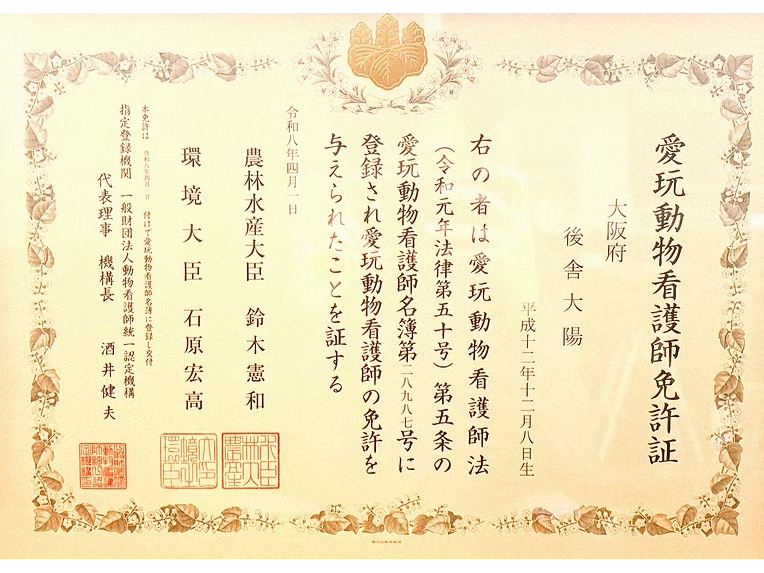 愛玩動物看護師免許証
大阪府
後舎大陽
平成十二年十二月八日生
右の者は愛玩動物看護師法
(令和元年法律第五十号)第五条の
愛玩動物看護師名簿第二八九八七号に
登録され愛玩動物看護師の免許を
与えられたことを証する
令和八年四月一日
農林水産大臣 鈴木憲和
環境大臣 石原宏高
本免許は 令和八年四月一日 付けで愛玩動物看護師名簿に登録し交付
指定登録機関 一般財団法人動物看護師統一認定機構
代表理事 機構長 酒井健夫